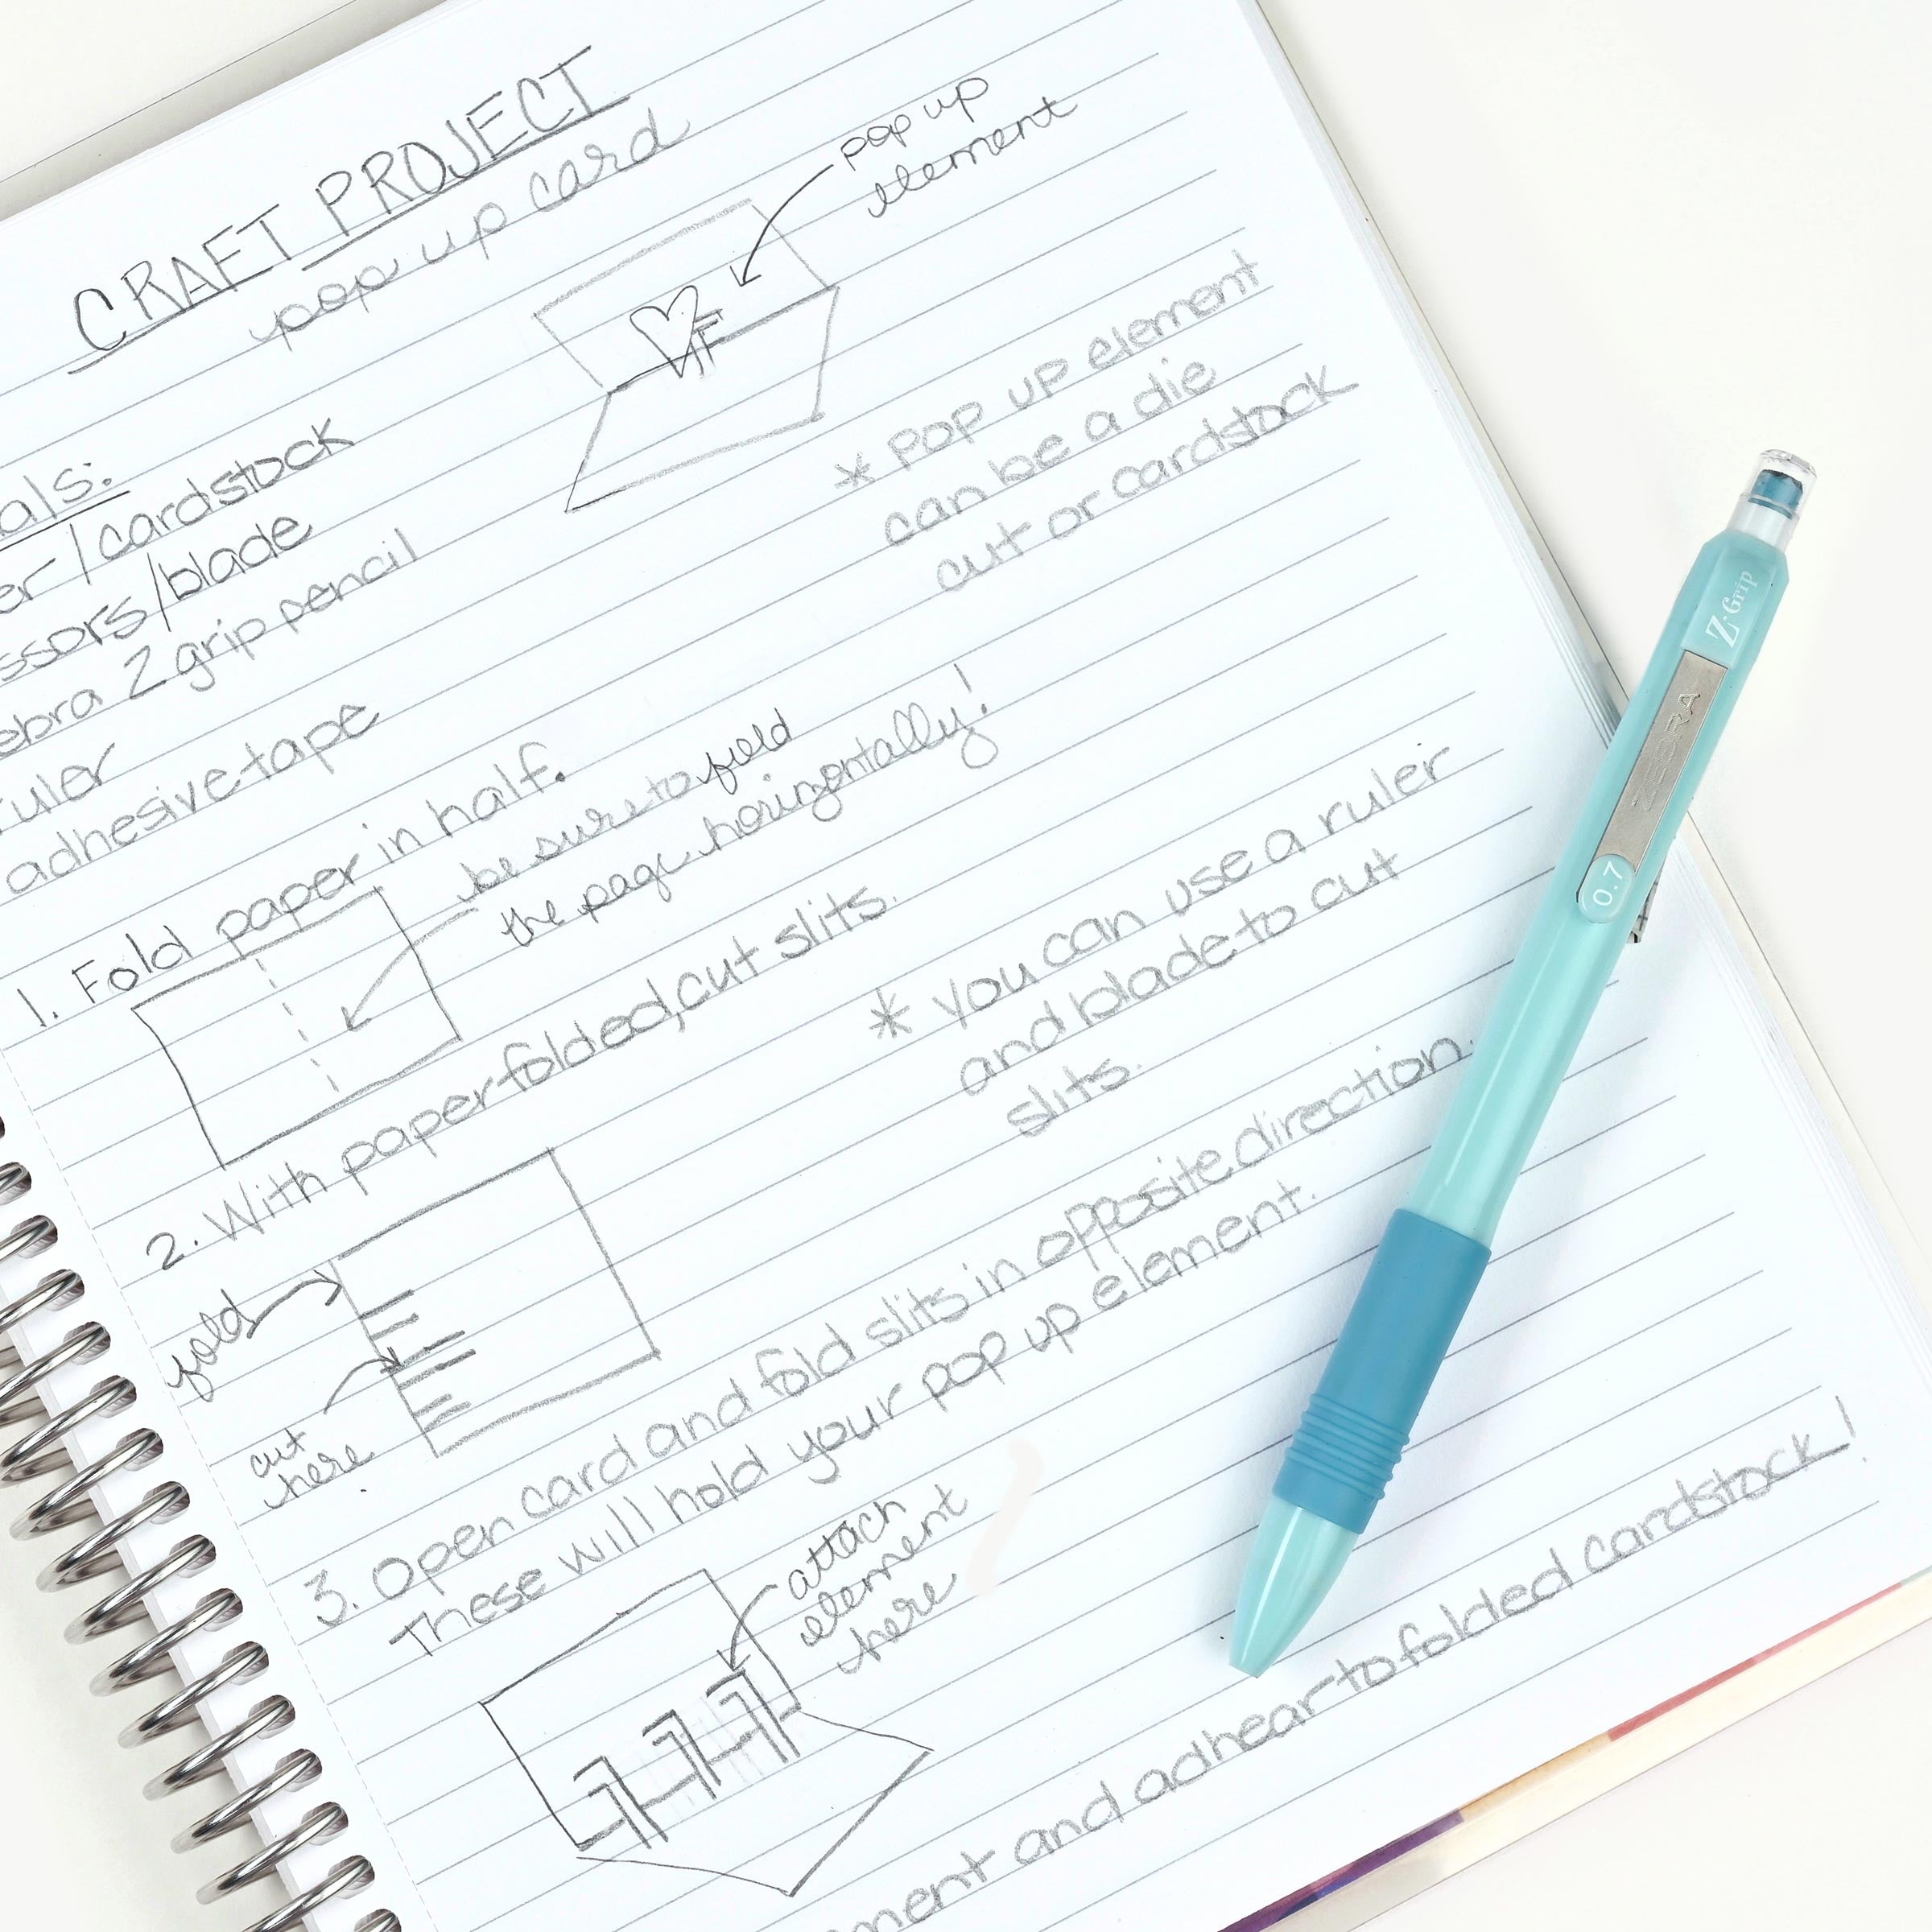 CRAFT PROJECT
pop up card
pop up
element
als:
er / cardstock
ssors/blade
ebra Z grip pencil
ruler
adhesive tape
* Pop up element
can be a die
cut or cardstock
1. Fold paper in half.
be sure to fold
the page horizontally!
2. With paper folded, cut slits.
* You can use a ruler
and blade to cut
slits.
fold
cut
here.
3. Open card and fold slits in opposite direction.
These will hold your pop up element.
attach
element
here
ment and adhear to folded cardstock!
Z-Grip
ZEBRA
0.7